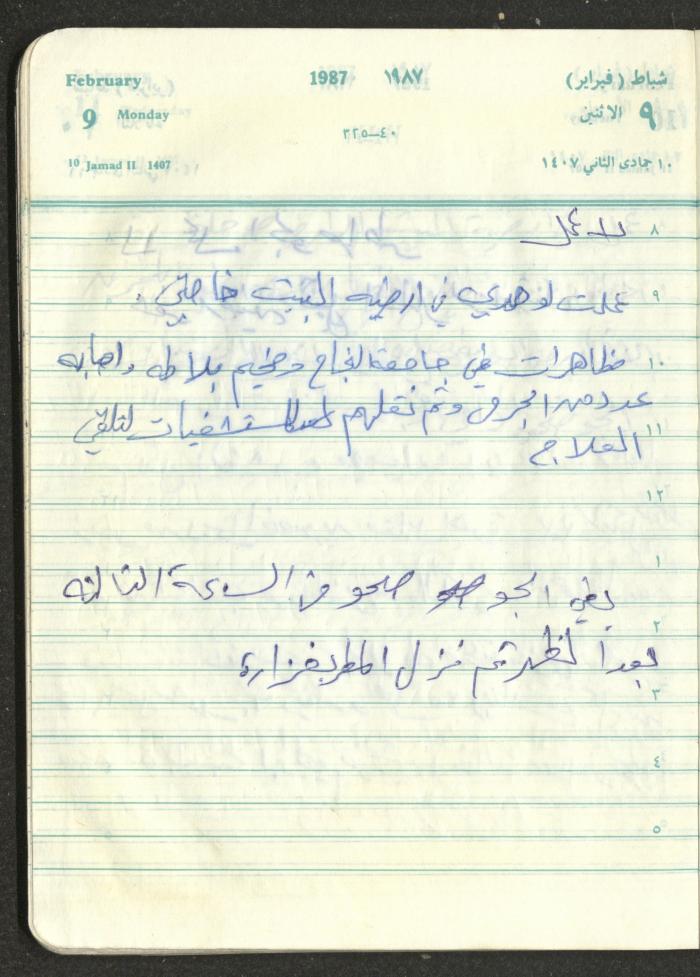 February 1987 ١٩٨٧ شباط (فبراير)
9 Monday ٩ الاثنين
٤٠-٣٢٥
10 Jamad II 1407 ١٠ جمادى الثاني ١٤٠٧
٨ لا عمل
٩ عملت لوحدي في ارضية البيت خاصتي .
١٠ مظاهرات في جامعة النجاح ومخيم بلاطه واصابه
عدد من الجرحى وتم نقلهم للمستشفيات لتلقي
١١ العلاج
١٢
١
بقي الجو صحو حتى الساعة الثالثه
٢
بعد الظهر ثم نزل المطر بغزارة
٣
٤
٥